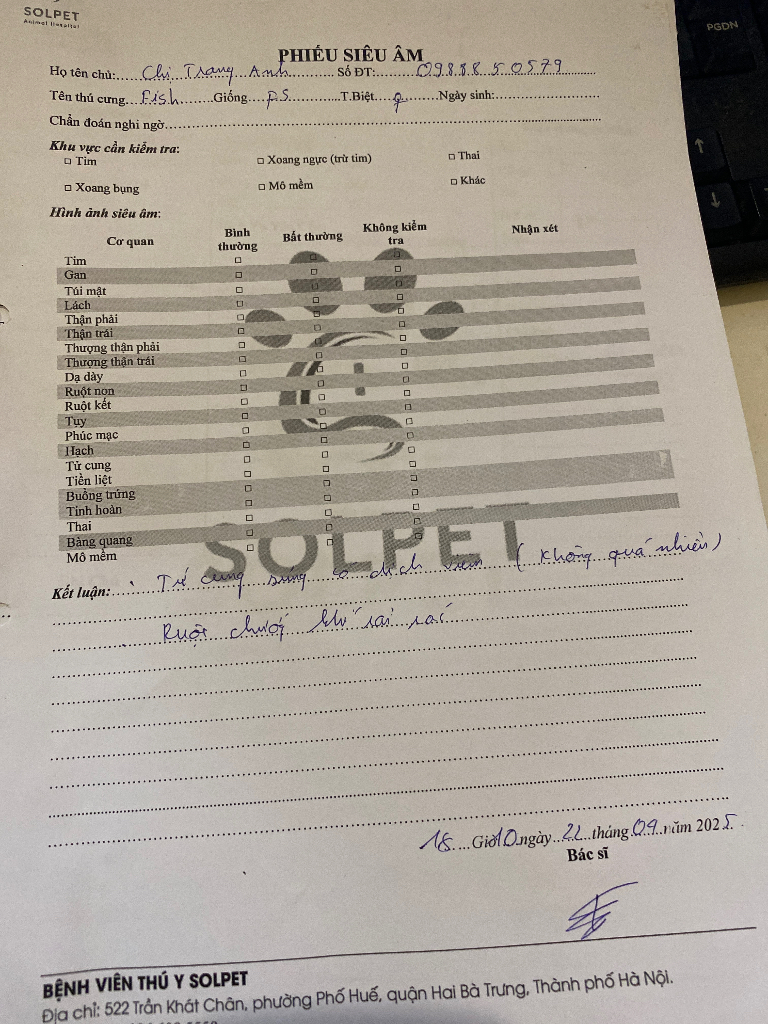 SOLPET
Animal Hospital
PGDN
PHIẾU SIÊU ÂM
Họ tên chủ: Chị Trang Anh Số ĐT: 0988850579
Tên thú cưng Fish Giống P.S T.Biệt ♀ Ngày sinh:
Chẩn đoán nghi ngờ
Khu vực cần kiểm tra:
□ Tim □ Xoang ngực (trừ tim) □ Thai
□ Xoang bụng □ Mô mềm □ Khác
Hình ảnh siêu âm:
Cơ quan Bình thường Bất thường Không kiểm tra Nhận xét
Tim □ □ □
Gan □ □ □
Túi mật □ □ □
Lách □ □ □
Thận phải □ □ □
Thận trái □ □ □
Thượng thận phải □ □ □
Thượng thận trái □ □ □
Dạ dày □ □ □
Ruột non □ □ □
Ruột kết □ □ □
Tụy □ □ □
Phúc mạc □ □ □
Hạch □ □ □
Tử cung □ □ □
Tiền liệt □ □ □
Buồng trứng □ □ □
Tinh hoàn □ □ □
Thai □ □ □
Bàng quang □ □ □
Mô mềm □ □ □
SOLPET
Kết luận: cung sừng có dịch viêm (không quá nhiều)
Ruột chướng khí rải rác
18 Giờ 10 ngày 22 tháng 09 năm 2025
Bác sĩ
BỆNH VIỆN THÚ Y SOLPET
Địa chỉ: 522 Trần Khát Chân, phường Phố Huế, quận Hai Bà Trưng, Thành phố Hà Nội.